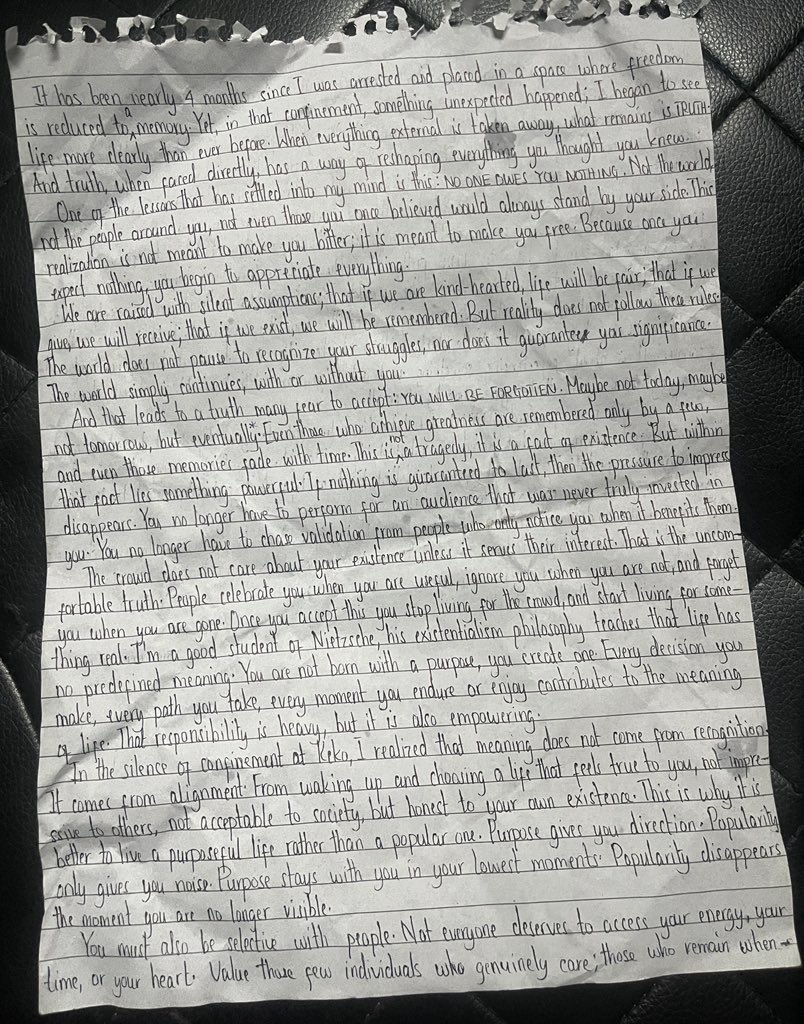 It has been nearly 4 months since I was arrested aid placed in a space where freedom
is reduced to a memory. Yet, in that confinement, something unexpected happened; I began to see
life more clearly than ever before. When everything external is taken away, what remains is TRUTH.
And truth, when faced directly, has a way of reshaping everything you thought you knew.
One of the lessons that has settled into my mind is this: NO ONE OWES YOU NOTHING. Not the world,
not the people around you, not even those you once believed would always stand by your side. This
realization is not meant to make you bitter; it is meant to make you free. Because once you
expect nothing, you begin to appreciate everything.
We are raised with silent assumptions; that if we are kind-hearted, life will be fair; that if we
give, we will receive; that if we exist, we will be remembered. But reality does not follow these rules.
The world does not pause to recognize your struggles, nor does it guarantee your significance.
The world simply continues, with or without you.
And that leads to a truth many fear to accept: YOU WILL BE FORGOTTEN. Maybe not today, maybe
not tomorrow, but eventually. Even those who achieve greatness are remembered only by a few,
and even those memories fade with time. This is not a tragedy, it is a fact of existence. But within
that fact lies something powerful. If nothing is guaranteed to last, then the pressure to impress
disappears. You no longer have to perform for an audience that was never truly invested in
you. You no longer have to chase validation from people who only notice you when it benefits them.
The crowd does not care about your existence unless it serves their interest. That is the uncom-
fortable truth. People celebrate you when you are useful, ignore you when you are not, and forget
you when you are gone. Once you accept this you stop living for the crowd, and start living for some-
thing real. I'm a good student of Nietzsche, his existentialism philosophy teaches that life has
no predefined meaning. You are not born with a purpose, you create one. Every decision you
make, every path you take, every moment you endure or enjoy contributes to the meaning
of life. That responsibility is heavy, but it is also empowering.
In the silence of confinement at Keko, I realized that meaning does not come from recognition.
It comes from alignment. From waking up and choosing a life that feels true to you, not impre-
ssive to others, not acceptable to society, but honest to your own existence. This is why it is
better to live a purposeful life rather than a popular one. Purpose gives you direction. Popularity
only gives you noise. Purpose stays with you in your lowest moments. Popularity disappears
the moment you are no longer visible.
You must also be selective with people. Not everyone deserves to access your energy, your
time, or your heart. Value those few individuals who genuinely care; those who remain when-